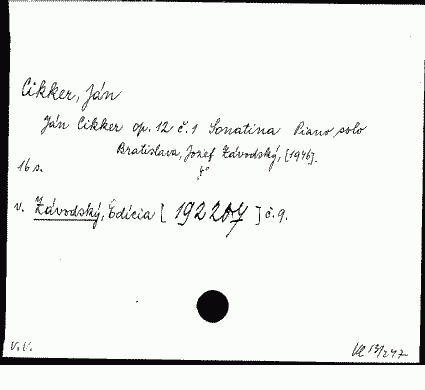 Cikker, Ján
Ján Cikker op. 12 č. 1 Sonatina Piano solo
Bratislava, Jozef Závodský, [1946].
16 s. 8°
v. Závodský, Edícia [ ] č. 9.
V.V.